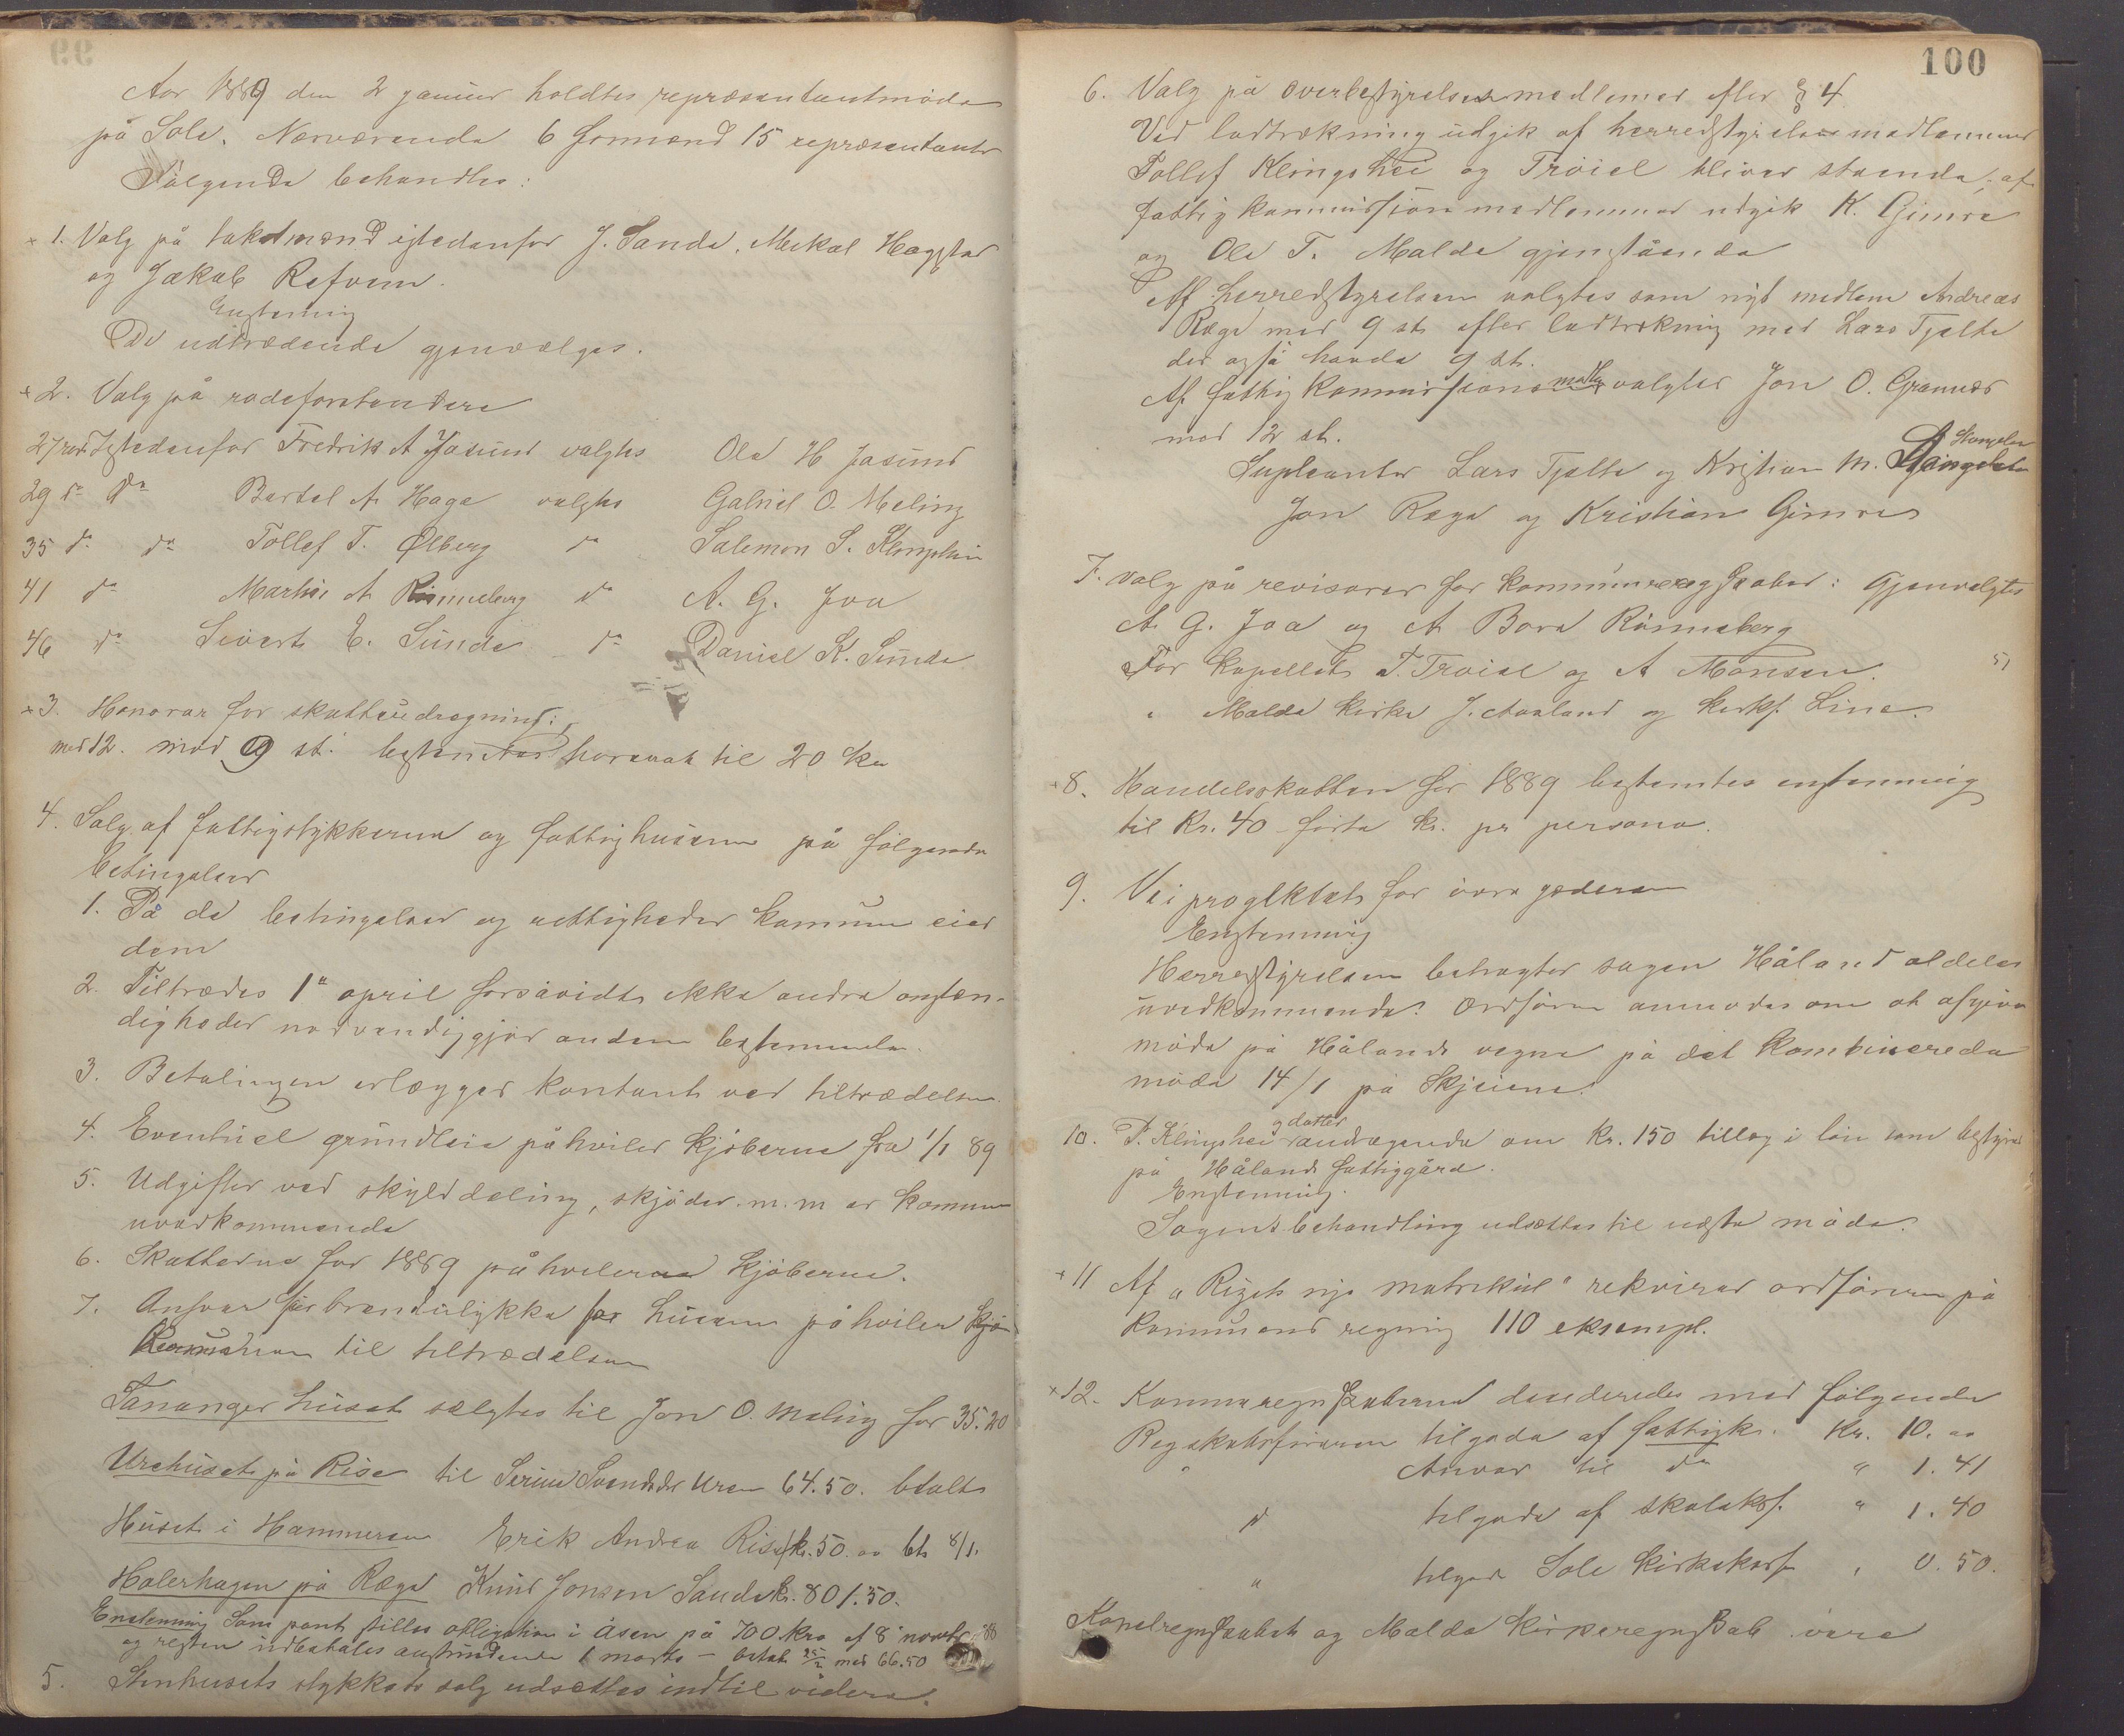 Aar 1889 den 2 januar holdtes repræsentantmøde
på Sole. Nærværende 6 formænd 15 repræsentanter
Følgende behandles:
1. Valg på takstmænd istedenfor J. Sande, Mekal Hagstad
og Jakob Refvem.
Enstemig
De udtrædende gjenvælges.
2. Valg på rodeforstandere
27 rod. Istedenfor Fredrik A Jasund valgtes Ole H Jasund
29 do do Bertel A Haga valgtes Gabriel O. Meling
35 do do Tollef T. Ølberg do Salemon S.
41 do Martin A Rönneberg do A. G. Joa
46 do Sivert E. Sunde do Daniel K. Sunde
3. Honorar for skatteudregning:
med 12 mod 9 st. bestemtes honorar til 20 kr
4. Salg af fattigstykkerne og fattighusene på følgende
betingelser
1. På de betingelser og rettigheder kommun eier
dem
2. Tiltrædes 1ste april forsåvidt ikke andre omstæn-
digheder nødvendiggjør anden bestemmelse.
3. Betalingen erlægges kontant ved tiltrædelsen.
4. Eventuel grundleie påhviler kjöberne fra 1/1 89
5. Udgifter ved skylddeling, skjöder m. m er kommun
uvedkommende
6. Skatterne for 1889 påhviler kjöberne.
7. Ansvar for brandulykke for husene påhviler kjö-
Kommunen til tiltrædelsen
Tananger huset sælgtes til Jon O. Meling for 35.20
Urehuset på Rise til Serine Svendsdr Uren 64.50. betalt
Huset i Hammeren Erik Andrea Rise kr. 50. oo bt. 8/1.
Holerhagen på Ræge Knud Jonsen Sande kr. 801.50.
Enstemmig Som pant stilles obligation i Åsen på 700 kro af 8 novbr 88
og resten udbetales anstundende 1 marts – betalt 25/2 med 66.50
5. Stenhusets stykkets salg udsættes indtil videre.
100
6. Valg på overbestyrelsesmedlemer efter § 4
Ved lodtrækning udgik af herredstyrelsesmedlemmer
Tollef Klingshei og Tröiel bliver stående, af
fattigkommissionsmedlemmer udgik K. Gimre
og Ole T. Malde gjenstående
Af herredstyrelsen valgtes som nyt medlem Andreas
Ræge med 9 st. efter lodtrækning med Lars Tjelta
der også havde 9 st.
Af fattigkommissions medl. valgtes Jon O. Grannes
med 12 st.
Supleanter Lars Tjelta og Kristian M.
Jon Ræge og Kristian Gimre
7. Valg på revisorer for kommuneregskaber: Gjenvalgtes
A. G. Joa og A Bore Rönneberg
For kapellet T. Tröiel og A Monsen.
" Malde kirke J. Aaland og kirks. Line.
8. Handelsskatten for 1889 bestemtes enstemmig
til Kr. 40 förta kr. pr persona.
9. Vei progektet for övre jæderen
Enstemmig
Herredstyrelsen betragter sagen Håland aldeles
uvedkommende. Ordfören anmodes om at afgive
møde på Hålands vegne på det kombinerede
møde 14/1 på Skjeiene.
10. T. Klingshei og datter andragende om kr. 150 tillæg i lön som bestyrer
på Hålands fattiggård.
Enstemmig.
Sagens behandling udsættes til næste møde.
11 Af "Rigets nye matrikul" rekvirer ordföreren på
Kommunens regning 110 eksempl.
12. Kommuneregnskaberne desideredes med følgende
Regskabsföreren tilgode af fattigk. Kr. 10. oo
" Ansvar til do " 1.41
" tilgode af skolekas. " 1.40
" tilgode Sole kirkekasse " 0.50.
Kapelregnskabet og Malde kirkeregnskab være